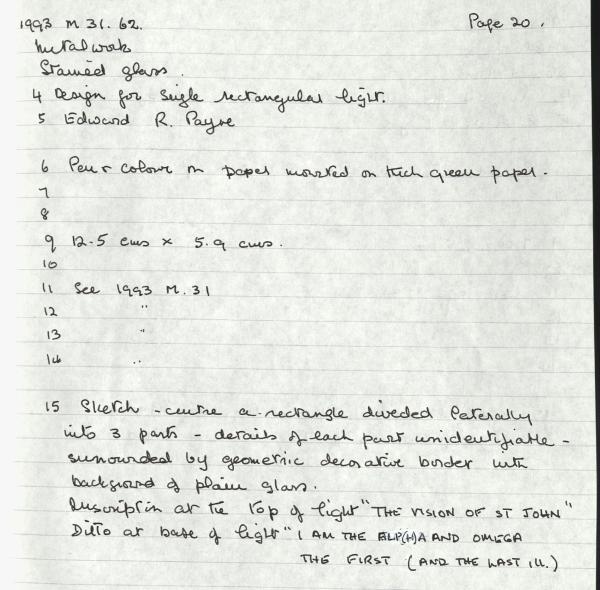 1993 M 31. 62. Page 20.
Metalwork
Stained glass.
4 Design for single rectangular light.
5 Edward R. Payne
6 Pen & colour on paper mounted on thick green paper.
7
8
9 12.5 cms x 5.9 cms.
10
11 See 1993 M.31
12 "
13 "
14 "
15 Sketch - centre a rectangle divided laterally
into 3 parts - details of each part unidentifiable -
surrounded by geometric decorative border with
background of plain glass.
Inscription at the top of light "THE VISION OF ST JOHN"
Ditto at base of light "I AM THE ALP(H)A AND OMEGA
THE FIRST (AND THE LAST ill.)